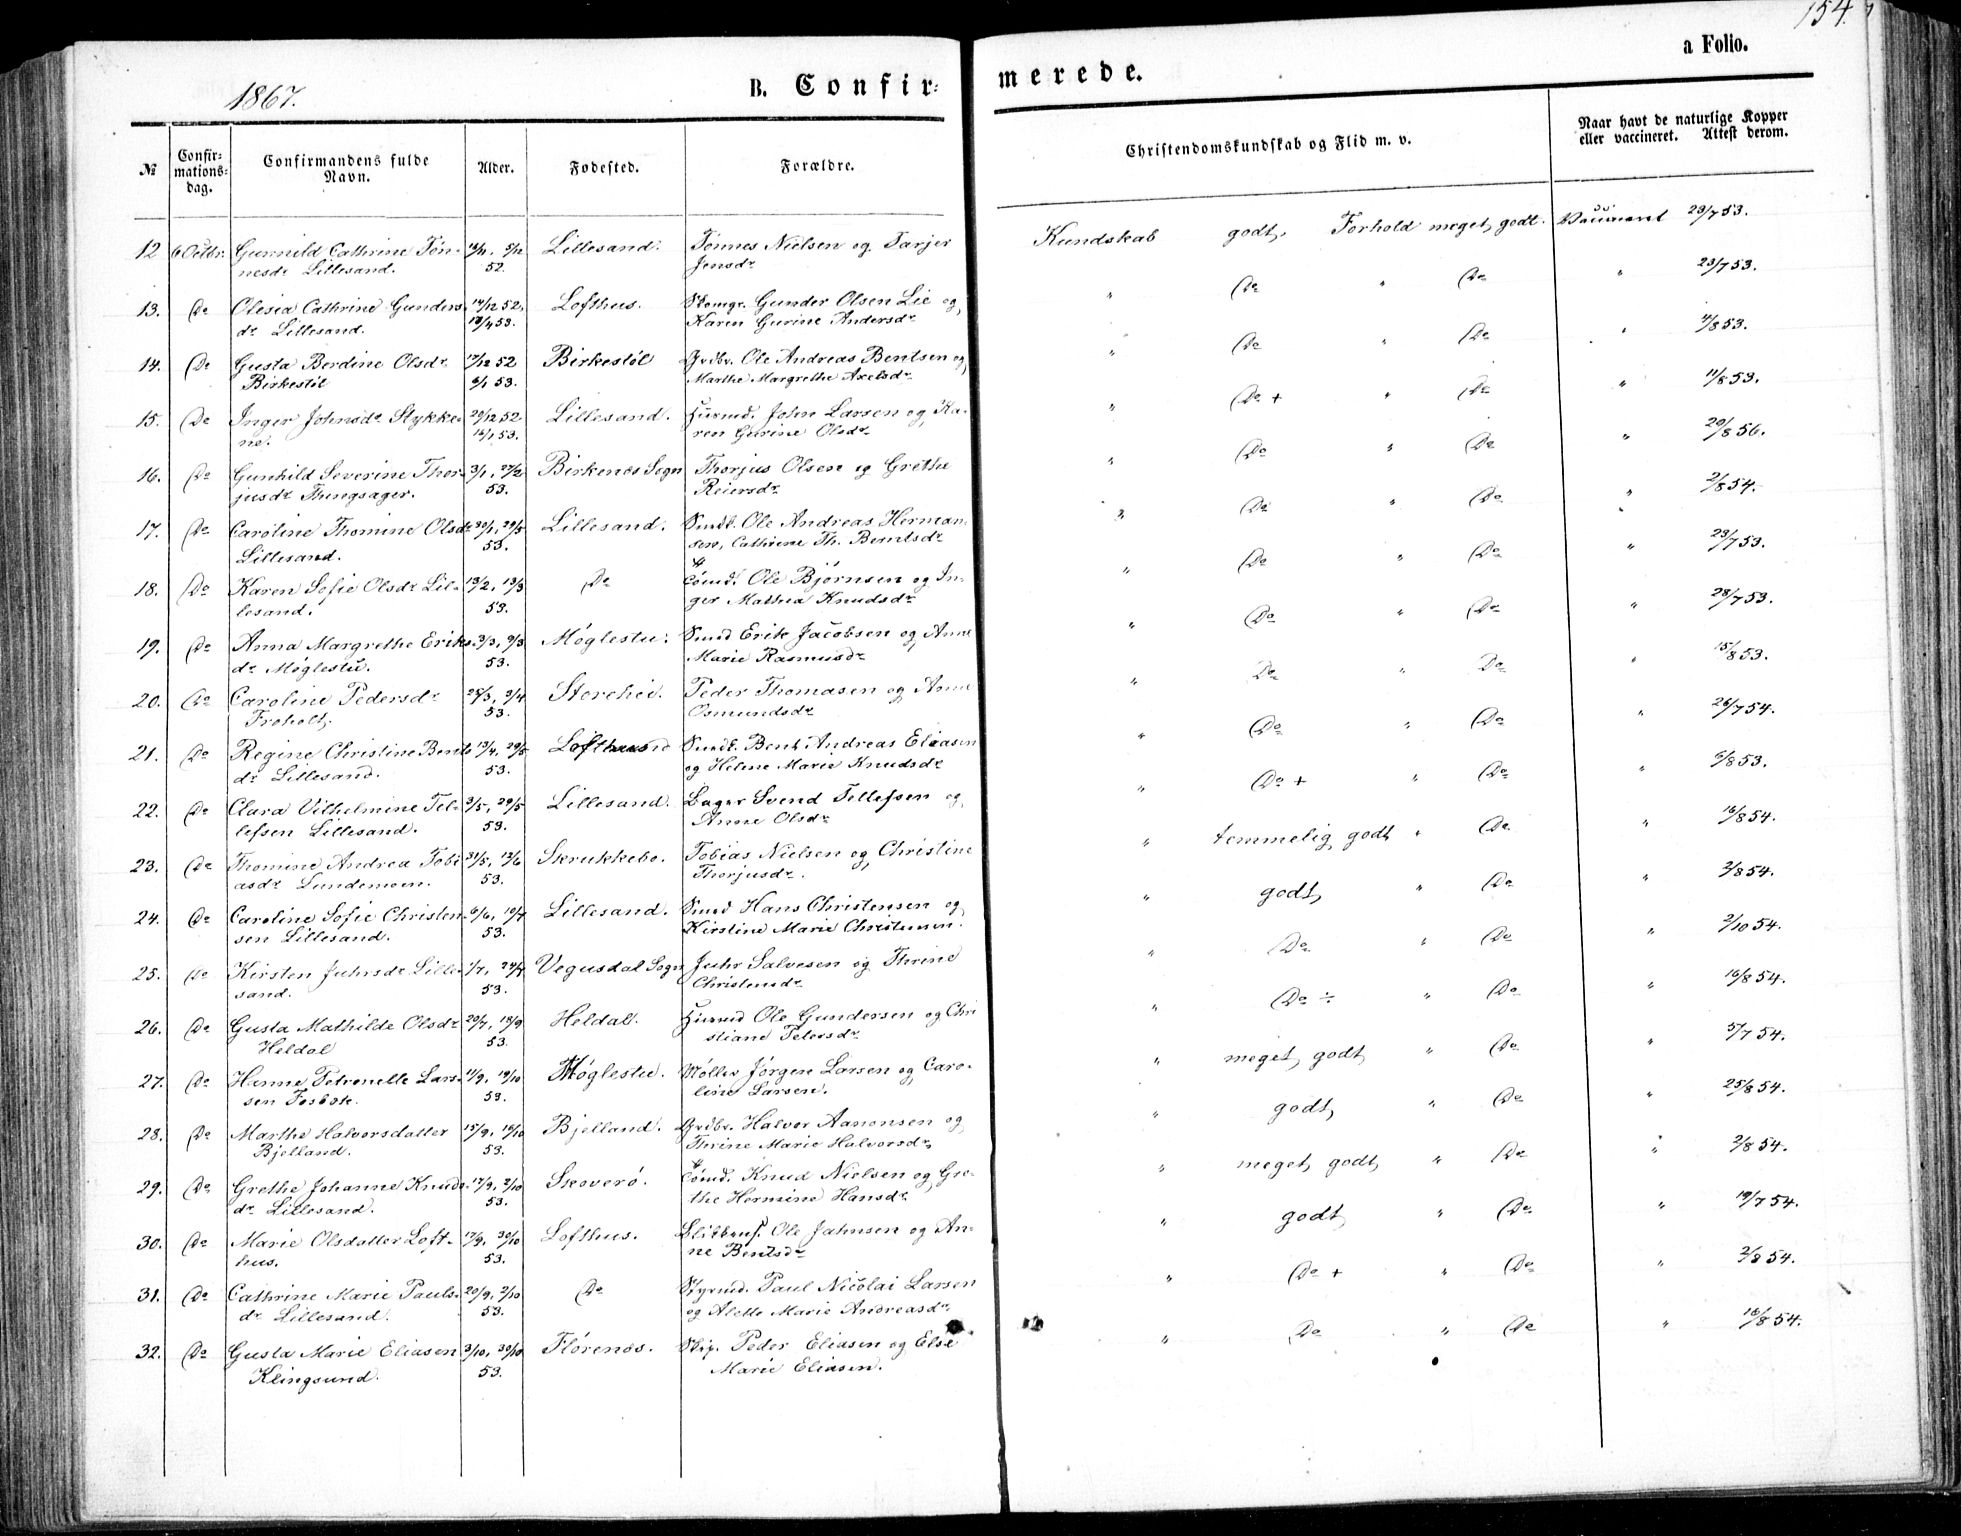 154.
a Folio.
1867.
B. Confir-
merede.
№
Confir-
mations-
dag.
Confirmandens fulde
Navn.
Alder.
Fødested.
Forældre.
Christendomskundskab og Flid m. v.
Naar havt de naturlige Kopper
eller vaccineret. Attest derom.
12 6 Octbr. Gunnild Cathrine Tøn- Lillesand. Tønnes Nielsen og Tarjer Kundskab godt, Forhold meget godt. Vaccineret 23/7 53.
nesdr Lillesand. 52. Jensdr
13. Do Olesia Cathrine Gunders- 14/12 52, Lofthus. Gunder Olsen Lie og " Do " Do " 23/7 53.
dr Lillesand. Karen Gurine Andersdr
14. Do Gusta Berdine Olsdr 17/12 52 Birkestøl Grdbr. Ole Andreas Bentsen og " Do " Do " 4/8 53.
Birkestøl 6/1 53. Marthe Margrethe Axelsdr
15. Do Inger Johnsdr Stykke- 20/12 52 Lillesand. Huusmd. John Larsen og Ka- " Do + " Do " 11/8 53.
ne. 16/1 53. ren Gurine Olsdr
16. Do Gunhild Severine Thor- 3/1, 27/2 Birkenes Sogn Thorjus Olsen og Grethe " Do " Do " 20/8 56.
jusdr Thingsager. 53. Reiersdr
17. Do Caroline Thomine Olsdr 30/1, 29/5 Lillesand. Ole Andreas Herman- " Do " Do " 2/8 54.
Lillesand. 53. sen, Cathrine Th. Berntsdr
18. Do Karen Sofie Olsdr Lil- 13/2, 13/3 Do Sømd. Ole Bjørnsen og In- " Do " Do " 23/7 53.
lesand. 53. ger Mathea Knudsdr
19. Do Anna Margrethe Eriks- 3/3, 9/3 Møglestu. Smed Erik Jacobsen og Anne " Do " Do " 28/7 53.
dr Møglestu. 53. Marie Rasmusdr
20. Do Caroline Pedersdr 28/3, 3/4 Storehei. Peder Thomasen og Anne " Do " Do " 15/8 53.
Froholt. 53. Osmundsdr
21. Do Regine Christine Bents- 13/4, 29/5 Bent Andreas Eliasen " Do " Do " 26/7 54.
dr Lillesand. 53. og Helene Marie Knudsdr
22. Do Clara Vilhelmine Tel- 3/5, 29/5 Lillesand. Bager Svend Tellefsen og " Do + " Do " 6/8 53.
lefsen Lillesand. 53. Anne Olsdr
23. Do Thomine Andrea Tobi- 31/5, 13/6 Skrukkebo. Tobias Nielsen og Christine " temmelig godt " Do " 16/8 54.
asdr Lundemoen. 53. Thorjusdr.
24. Do Caroline Sofie Christen- 6/6, 10/7 Lillesand. Smed Hans Christensen og " godt, " Do " 2/8 54.
sen Lillesand. 53. Kirstine Marie Christensen.
25. Do Kirsten Juhrsdr Lille- 1/7, 24/7 Vegusdal Sogn Juhr Salvesen og Thrine " Do " Do " 2/10 54.
sand. 53. Christensdr
26. Do Gusta Mathilde Olsdr 20/7, 18/9 Heldal. Huusmd Ole Gundersen og Chri " Do ÷ " Do " 16/8 54.
Heldal 53. stiane Petersdr
27. Do Hanne Petronelle Lars- 11/9, 19/10 Møglestu. Møller Jørgen Larsen og Caro- " meget godt " Do " 5/7 54.
sen Fosbæk. 53. line Larsen.
28. Do Marthe Halvorsdatter 15/9, 16/10 Bjelland. Grdbr. Halvor Aanonsen og " godt, " Do " 25/8 54.
Bjelland. 53. Thrine Marie Halvorsdr
29. Do Grethe Johanne Knuds- 17/9, 2/10 Skoverø. Sømd. Knud Nielsen og Gre- " meget godt, " Do " 2/8 54.
dr Lillesand. 53. the Hermine Hansdr
30. Do Marie Olsdatter Loft- 17/9, 30/10 Lofthus. Ole Jahnsen og An- " godt " Do " 19/7 54.
hus. 53. ne Bentsdr
31. Do Cathrine Marie Pauls- 20/9, 2/10 Do Styrmd. Paul Nicolai Larsen " Do + " Do " 2/8 54.
dr Lillesand. 53. og Alette Marie Andreasdr
32. Do Gusta Marie Eliasen 3/10, 30/10 Flørenæs. Skip. Peder Eliasen og Else " Do " Do " 16/8 54.
Klingsund. 53. Marie Eliasen.